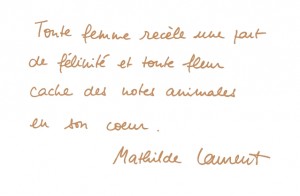 Toute femme recèle une part
de félinité et toute fleur
cache des notes animales
en son coeur.
Mathilde Laurent